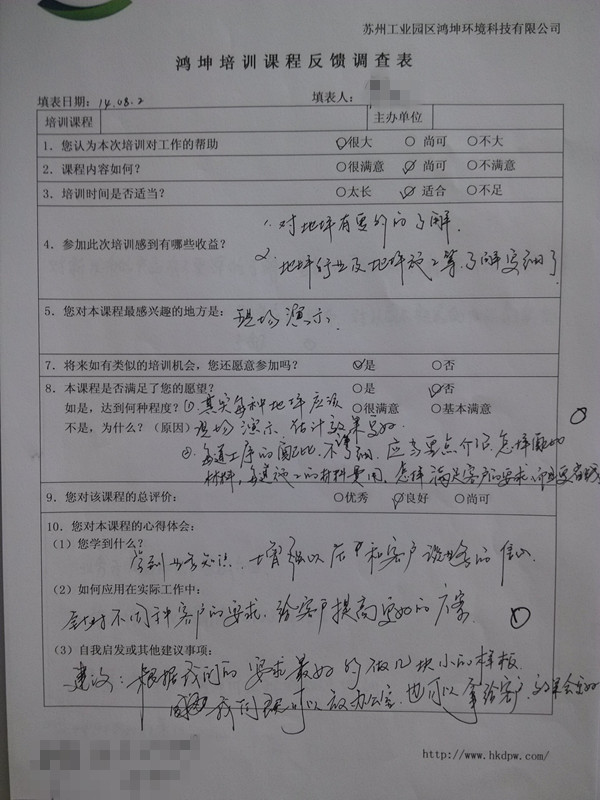 苏州工业园区鸿坤环境科技有限公司
鸿坤培训课程反馈调查表
填表日期: 14.08.2 填表人:
培训课程 主办单位
1. 您认为本次培训对工作的帮助 ○很大 ○ 尚可 ○不大
2. 课程内容如何? ○很满意 ○ 尚可 ○不满意
3. 培训时间是否适当? ○太长 ○ 适合 ○不足
4. 参加此次培训感到有哪些收益?
1. 对地坪有更多的了解.
2. 地坪行业及地坪施工等了解更细了
5. 您对本课程最感兴趣的地方是: 现场演示.
7. 将来如有类似的培训机会,您还愿意参加吗? ○是 ○否
8. 本课程是否满足了您的愿望? ○是 ○否
如是,达到何种程度? ①其实每种地坪应该 ○很满意 ○基本满意
不是,为什么?(原因) 现场演示 估计效果更好
②每道工序的配比,不详细,应当重点介绍怎样配比
材料,每道施工的材料费用,怎样满足客户的要求
9. 您对该课程的总评价: ○优秀 ○良好 ○尚可
10. 您对本课程的心得体会:
(1) 您学到什么?
学到业务知识. 增强以后和客户谈业务的信心
(2) 如何应用在实际工作中:
针对不同种客户的要求. 给客户提高更好的方案
(3) 自我启发或其他建议事项:
建议: 根据我们的要求最好的做几块小的样板
我们可以放办公室. 也可以拿给客户,效果会更好
http://www.hkdpw.com/